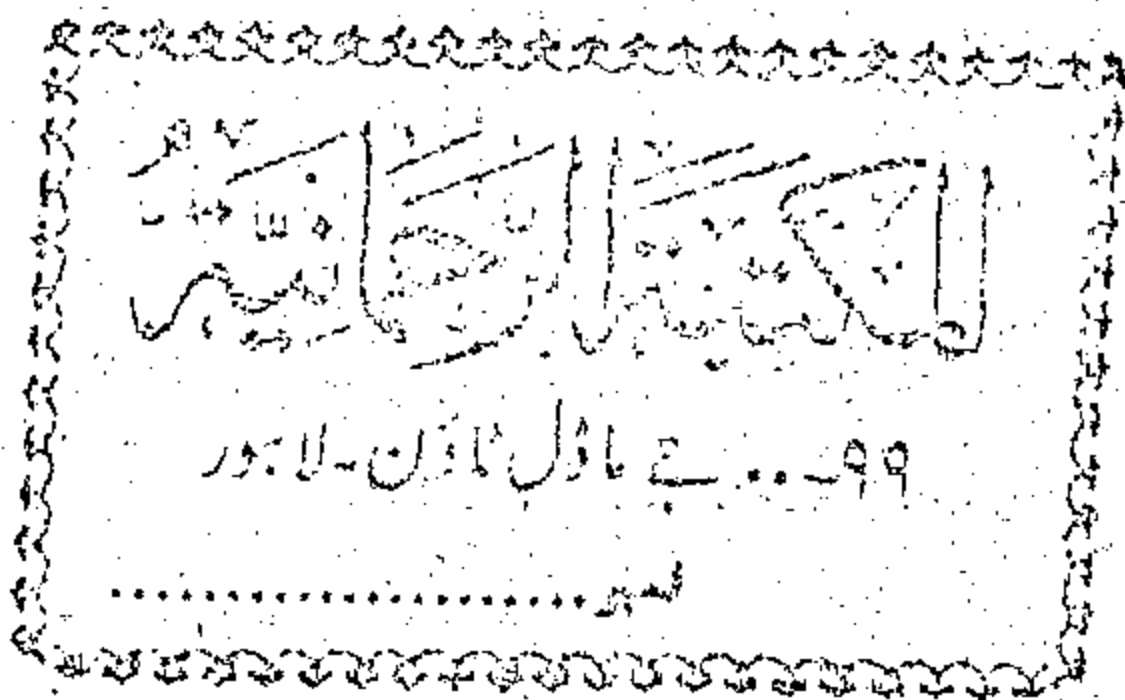 المكتبة الرحمانية
۹۹ - ... جے ماڈل ٹاؤن - لاہور
نمبر ....................